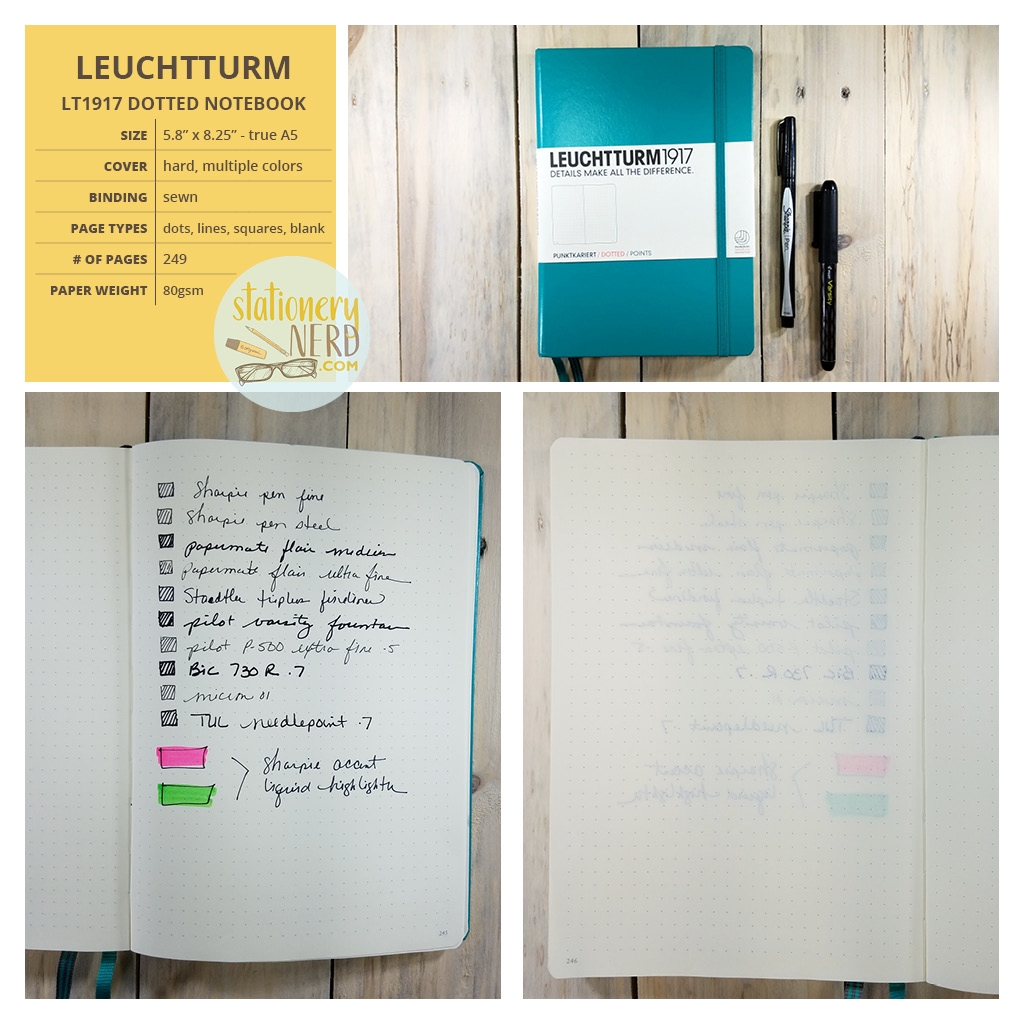 LEUCHTTURM
LT1917 DOTTED NOTEBOOK
SIZE 5.8” x 8.25” - true A5
COVER hard, multiple colors
BINDING sewn
PAGE TYPES dots, lines, squares, blank
# OF PAGES 249
PAPER WEIGHT 80gsm
stationery
NERD
.COM
LEUCHTTURM1917
DETAILS MAKE ALL THE DIFFERENCE.
PUNKTKARIERT / DOTTED / POINTS
Sharpie Pen
Varsity
Sharpie pen fine
Sharpie pen steel
papermate flair medium
papermate flair ultra fine
Staedtler triplus fineliner
pilot varsity fountain
pilot P-500 extra fine .5
Bic 730R .7
micron 01
TUL needlepoint .7
Sharpie accent
liquid highlighter
245
246